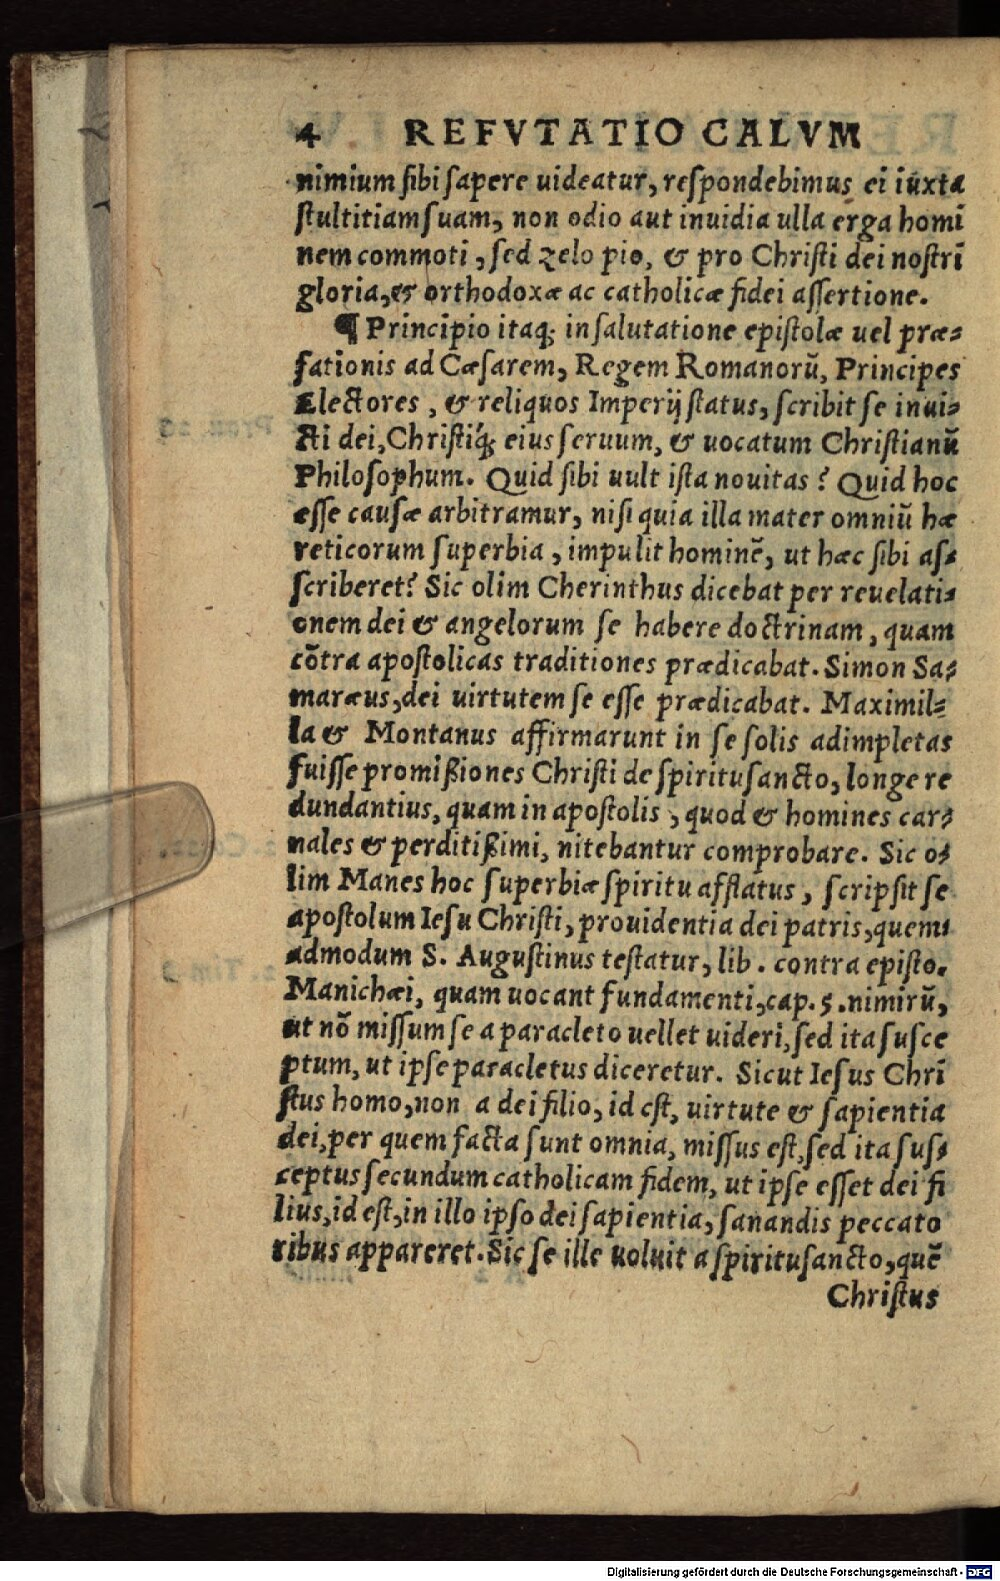 4 REFVTATIO CALVM
nimium ſibi ſapere uideatur, reſpondebimus ei iuxta
ſtultitiam ſuam, non odio aut inuidia ulla erga homi
nem commoti, ſed zelo pio, & pro Chriſti dei noſtri
gloria, & orthodoxæ ac catholicæ fidei aſſertione.
¶ Principio itaq; in ſalutatione epiſtolæ uel præ-
fationis ad Cæſarem, Regem Romanorū, Principes
Electores, & reliquos Imperij ſtatus, ſcribit ſe inui-
cti dei, Chriſtiq́; eius ſeruum, & uocatum Chriſtianū
Philoſophum. Quid ſibi uult iſta nouitas? Quid hoc
eſſe cauſæ arbitramur, niſi quia illa mater omniū hæ
reticorum ſuperbia, impulit hominē, ut hæc ſibi aſ-
ſcriberet? Sic olim Cherinthus dicebat per reuelati-
onem dei & angelorum ſe habere doctrinam, quam
cōtra apoſtolicas traditiones prædicabat. Simon Sa-
maræus, dei uirtutem ſe eſſe prædicabat. Maximil-
la & Montanus affirmarunt in ſe ſolis adimpletas
fuiſſe promißiones Chriſti de ſpirituſancto, longe re
dundantius, quam in apoſtolis, quod & homines car-
nales & perditißimi, nitebantur comprobare. Sic o-
lim Manes hoc ſuperbiæ ſpiritu afflatus, ſcripſit ſe
apoſtolum Ieſu Chriſti, prouidentia dei patris, quem-
admodum S. Auguſtinus teſtatur, lib. contra epiſto.
Manichæi, quam uocant fundamenti, cap. 5. nimirū,
ut nō miſſum ſe a paracleto uellet uideri, ſed ita ſuſce
ptum, ut ipſe paracletus diceretur. Sicut Ieſus Chri
ſtus homo, non a dei filio, id eſt, uirtute & ſapientia
dei, per quem facta ſunt omnia, miſſus eſt, ſed ita ſuſ-
ceptus ſecundum catholicam fidem, ut ipſe eſſet dei fi
lius, id eſt, in illo ipſo dei ſapientia, ſanandis peccato
ribus appareret. Sic ſe ille uoluit a ſpirituſancto, quē
Chriſtus
Digitalisierung gefördert durch die Deutsche Forschungsgemeinschaft - DFG